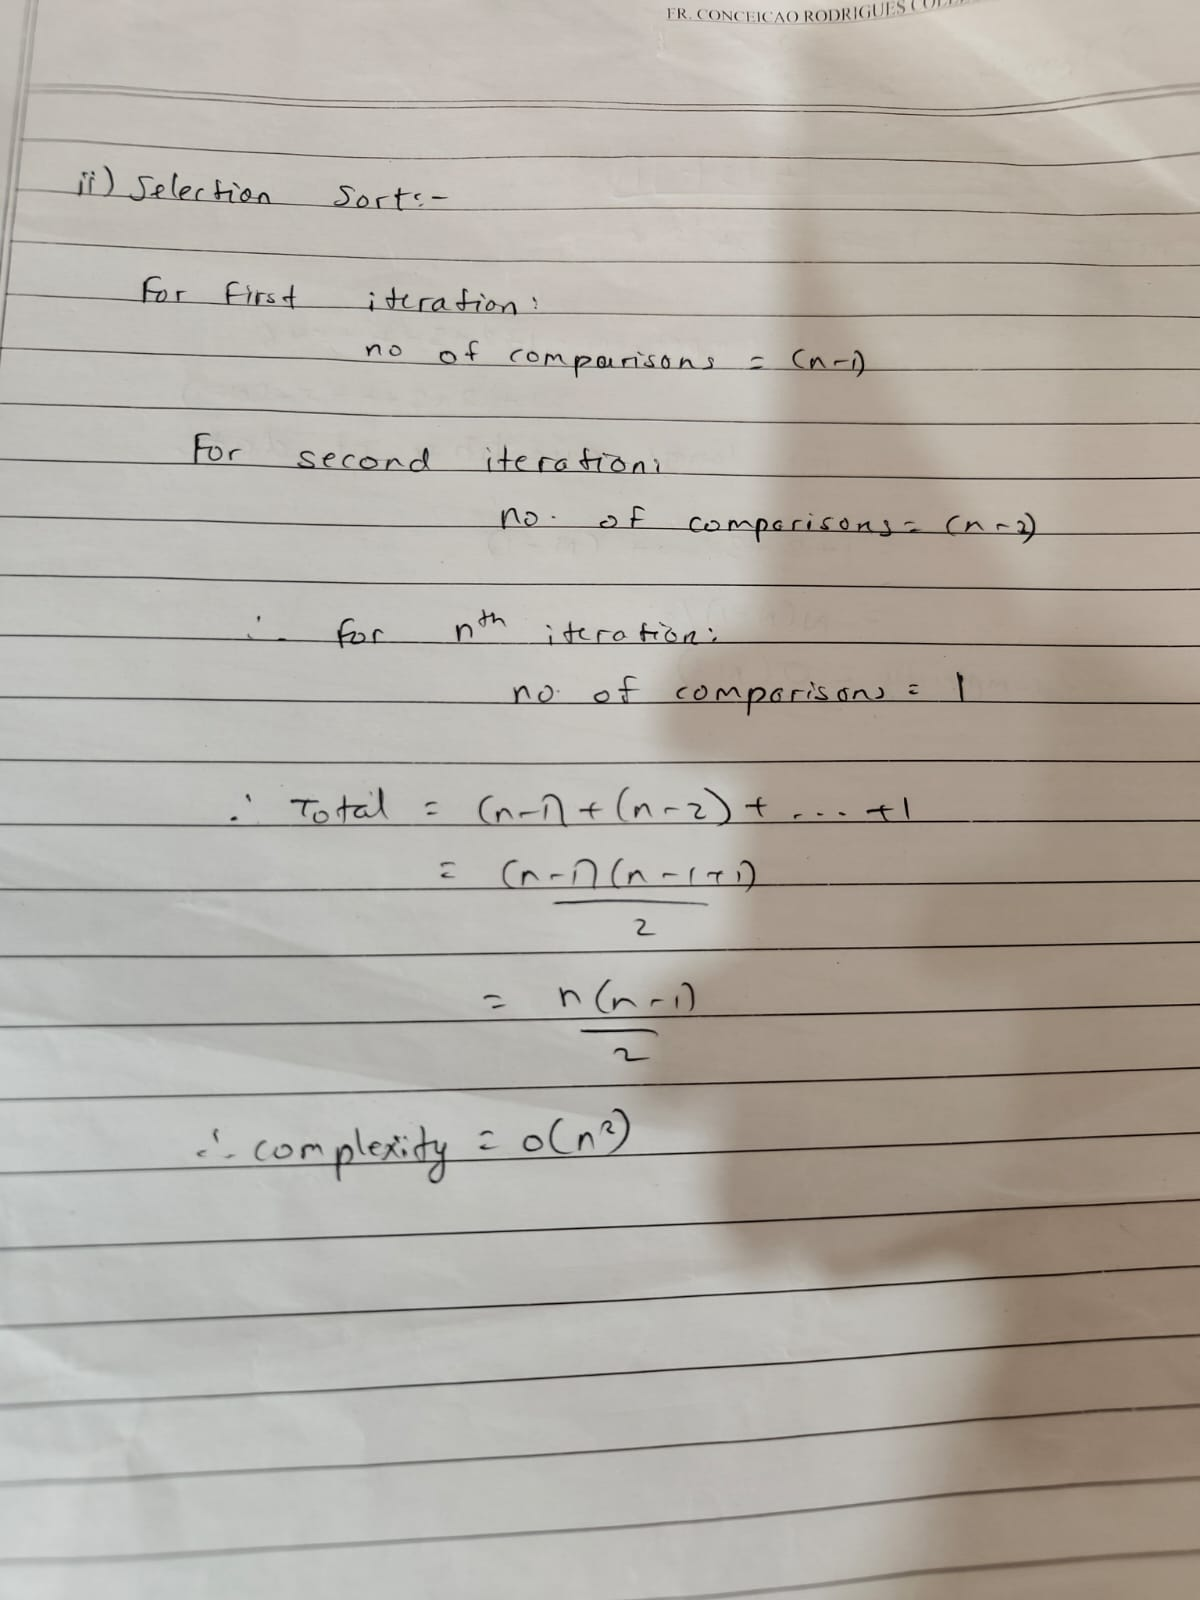 FR. CONCEICAO RODRIGUES
ii) Selection Sort:-
For First iteration:
no of comparisons = (n-1)
For second iteration:
no. of comparisons = (n-2)
∴ for nth iteration:
no. of comparisons = 1
∴ Total = (n-1) + (n-2) + ... +1
= (n-1)(n-1+1)
2
= n(n-1)
2
∴ complexity = O(n²)